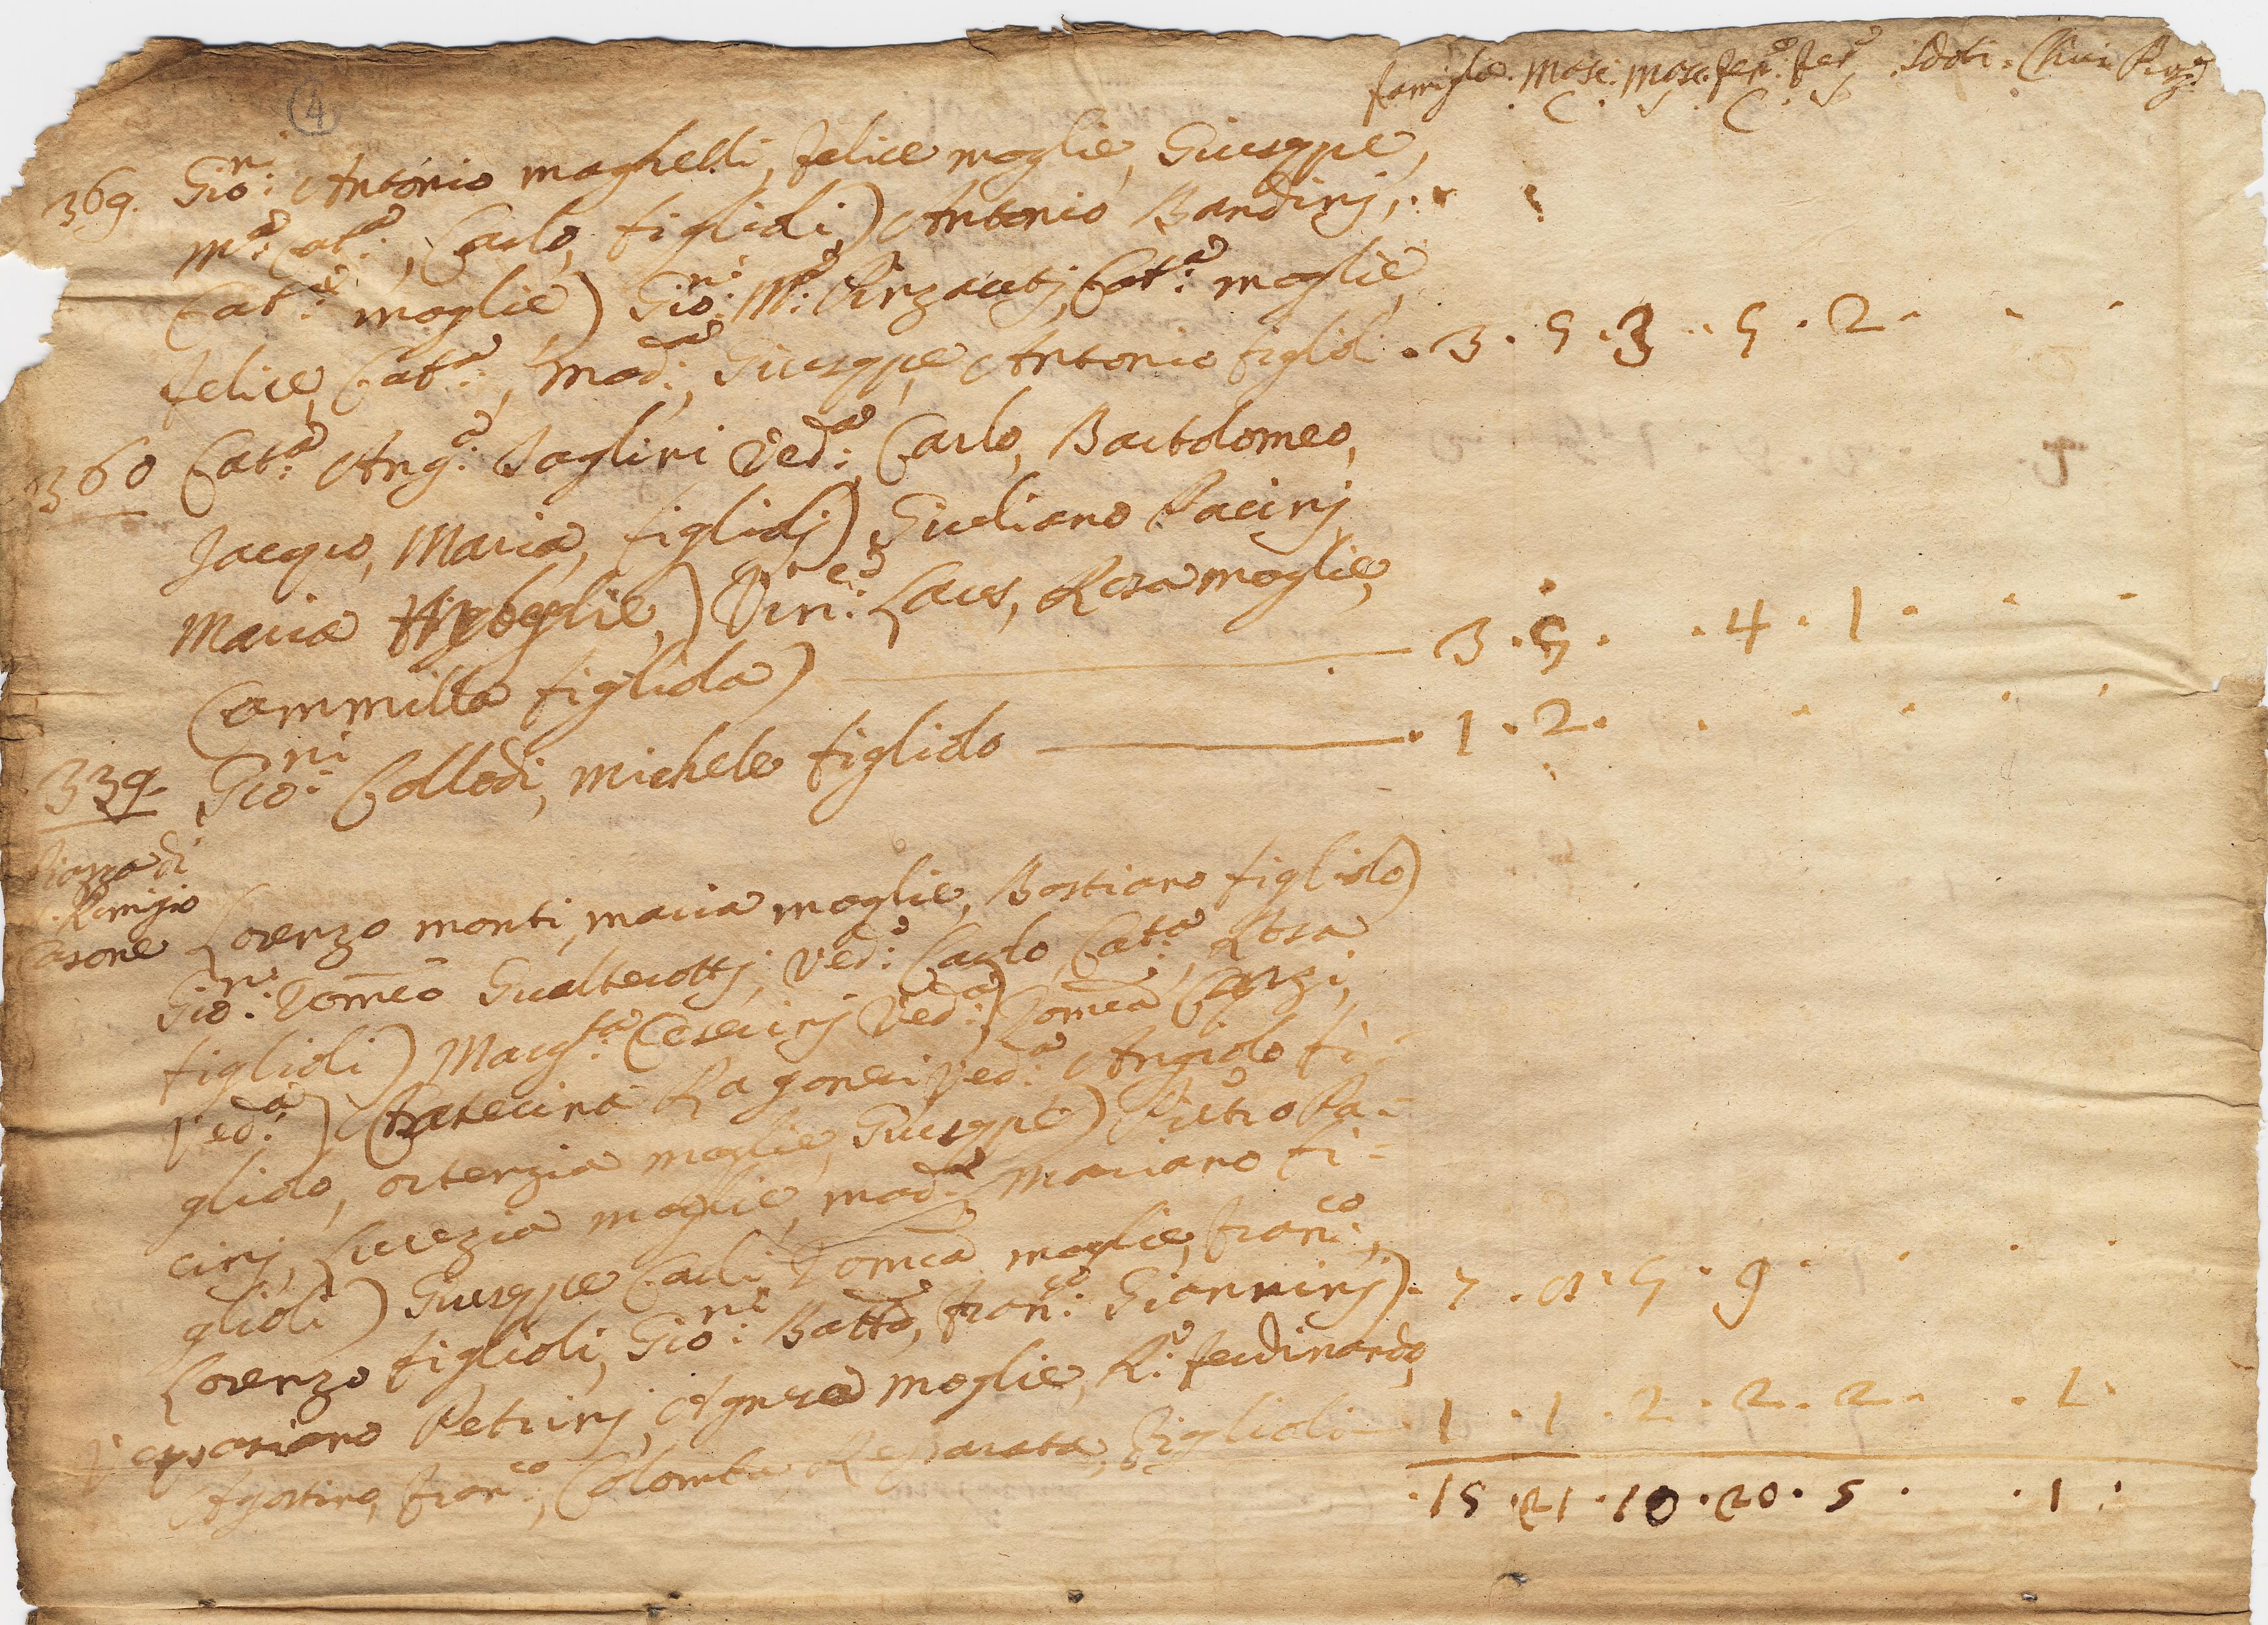 Famiglie. Masc. Masc. Fem.e Fem.e Sdoti. Chier. Rez.
. C . S . C . S
4
369. Gio:ni Antonio maghelli, felice moglie, Giuseppe,
M.a Cat.a, Carlo, figlioli) Antonio Bandinj,
Cat.a moglie) Gio:ni M.a Pinzautj, Cat.a moglie,
felice, Cat.a, Mad.a, Giuseppe, Antonio figlioli . 3 . 5 . 3 . 5 . 2 .
360 Cat.a Ang.a Paglini Ved.a, Carlo, Bartolomeo,
Jacopo, Maria, figliolj) Giuliano Pacinj,
Maria moglie) Vin.co Laus, Rosa moglie,
Cammilla figliola) 3 . 5 . . 4 . 1 .
339. Gio:ni Collodi, Michele figliolo . 1 . 2 .
Piazza di
S. Remigio
Casone Lorenzo monti, maria moglie, Bastiano figliolo)
Gio:ni Domco Gualterottj, Ved.o Carlo, Cat.a, Rosa
figlioli) Marg.ta Ceserinj Ved.a) Domca
Ved.a) Caterina Ved.a Angiolo fi=
gliolo, ortenzia moglie, Giuseppe) Pietro Pa=
cinj, Lucrezia moglie, mad.a, mariano fi=
glioli) Giuseppe Carli, Domca moglie, fran.co,
Lorenzo figlioli, Gio:ni Batta, fran.co Gianninj) . 7 . 8 . 5 . 9 .
Vespasiano Petrinj, Agnesa moglie, R.o ferdinando,
Agostino, fran.co, Colomba, Reparata, figlioli . 1 . 1 . 2 . 2 . 2 . . 1 .
. 15 . 21 . 10 . 20 . 5 . . 1 :